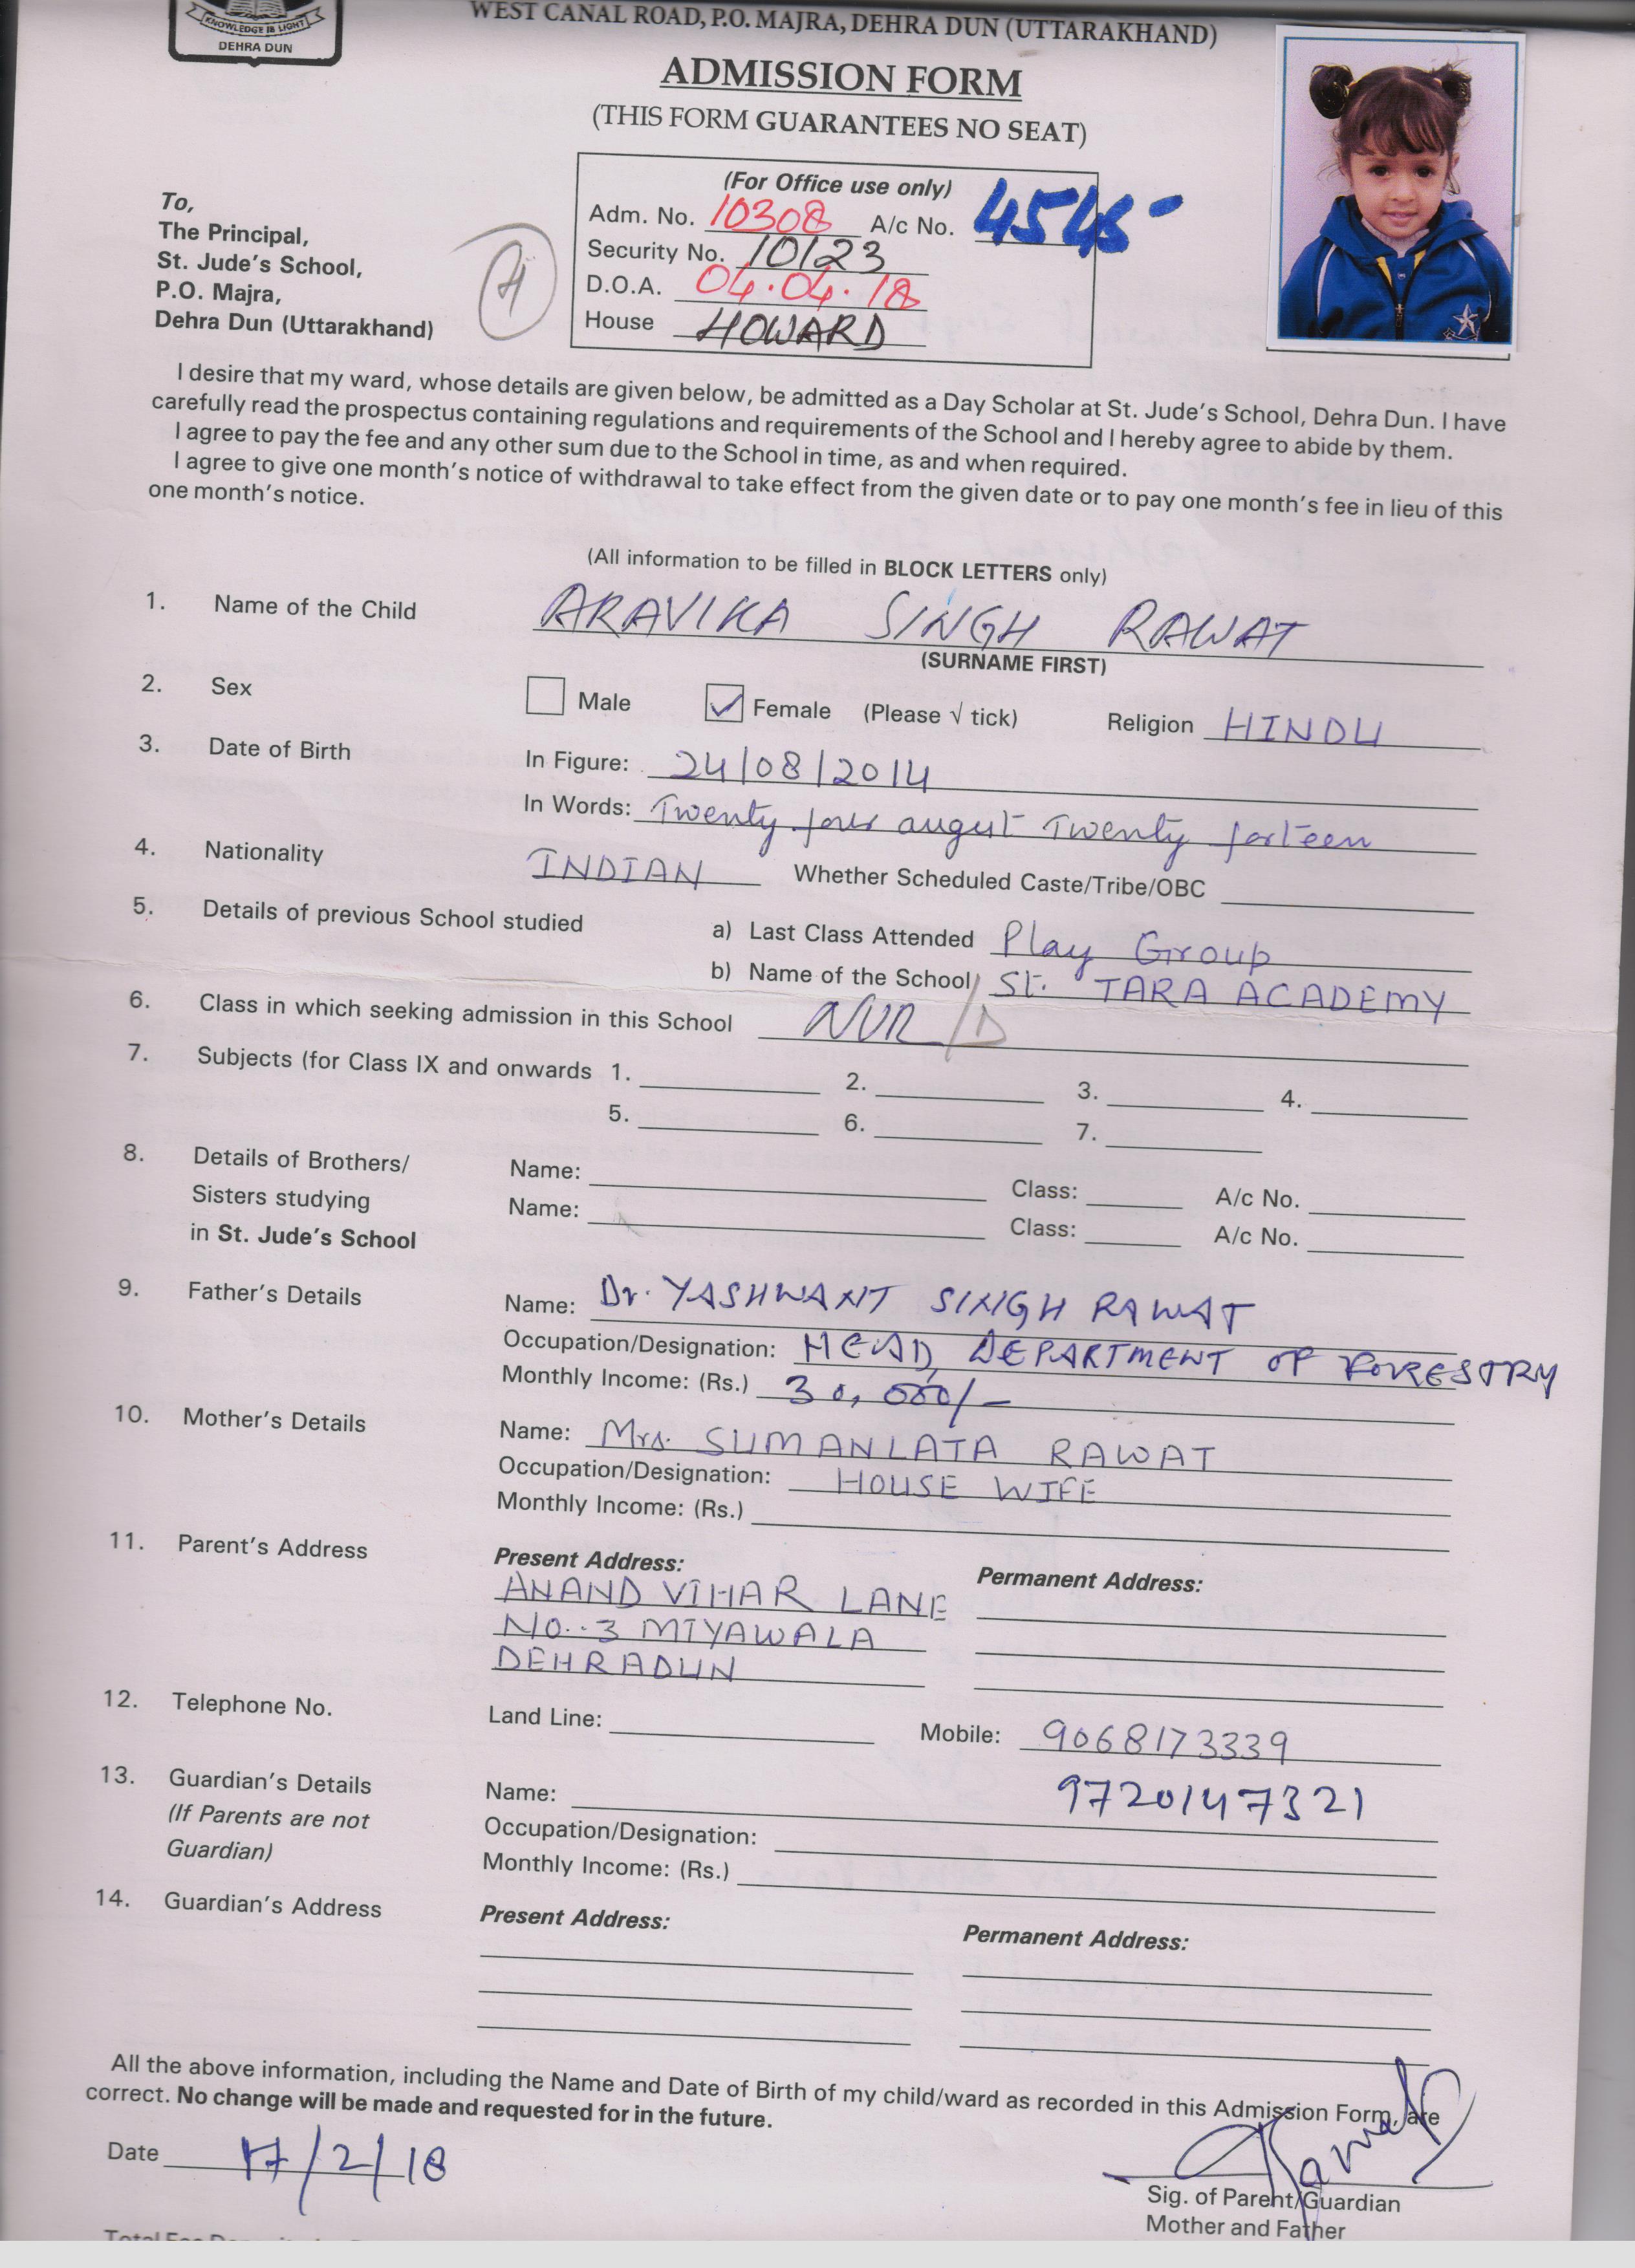 KNOWLEDGE IS LIGHT
DEHRA DUN
WEST CANAL ROAD, P.O. MAJRA, DEHRA DUN (UTTARAKHAND)
ADMISSION FORM
(THIS FORM GUARANTEES NO SEAT)
(For Office use only)
Adm. No. 10308 A/c No. 4545-
Security No. 10123
D.O.A. 04.04.18
House HOWARD
To,
The Principal,
St. Jude's School,
P.O. Majra,
Dehra Dun (Uttarakhand)
I desire that my ward, whose details are given below, be admitted as a Day Scholar at St. Jude's School, Dehra Dun. I have
carefully read the prospectus containing regulations and requirements of the School and I hereby agree to abide by them.
I agree to pay the fee and any other sum due to the School in time, as and when required.
I agree to give one month's notice of withdrawal to take effect from the given date or to pay one month's fee in lieu of this
one month's notice.
(All information to be filled in BLOCK LETTERS only)
1. Name of the Child ARAVIKA SINGH RAWAT
(SURNAME FIRST)
2. Sex Male Female (Please √ tick) Religion HINDU
3. Date of Birth In Figure: 24/08/2014
In Words: Twenty four august Twenty forteen
4. Nationality INDIAN Whether Scheduled Caste/Tribe/OBC
5. Details of previous School studied a) Last Class Attended Play Group
b) Name of the School St. TARA ACADEMY
6. Class in which seeking admission in this School NUR/D
7. Subjects (for Class IX and onwards 1. 2. 3. 4.
5. 6. 7.
8. Details of Brothers/ Name: Class: A/c No.
Sisters studying Name: Class: A/c No.
in St. Jude's School
9. Father's Details Name: Dr. YASHWANT SINGH RAWAT
Occupation/Designation: HEAD, DEPARTMENT OF FORESTRY
Monthly Income: (Rs.) 30,000/-
10. Mother's Details Name: Mrs. SUMANLATA RAWAT
Occupation/Designation: HOUSE WIFE
Monthly Income: (Rs.)
11. Parent's Address Present Address: Permanent Address:
ANAND VIHAR LANE
NO..3 MIYAWALA
DEHRADUN
12. Telephone No. Land Line: Mobile: 9068173339
9720147321
13. Guardian's Details Name:
(If Parents are not Occupation/Designation:
Guardian) Monthly Income: (Rs.)
14. Guardian's Address Present Address: Permanent Address:
All the above information, including the Name and Date of Birth of my child/ward as recorded in this Admission Form, are
correct. No change will be made and requested for in the future.
Date 17/2/18
Sig. of Parent/Guardian
Mother and Father